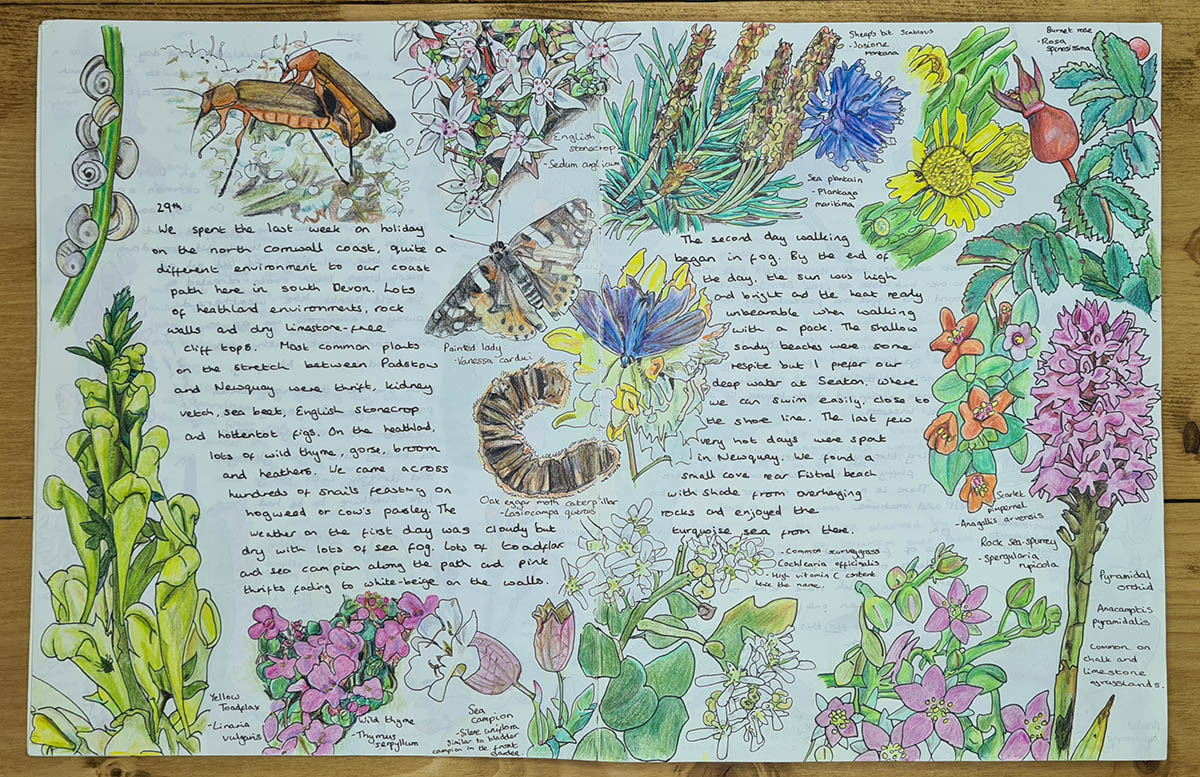 29th
We spent the last week on holiday
on the north Cornwall coast, quite a
different environment to our coast
path here in south Devon. Lots
of heathland environments, rock
walls and dry limestone-free
cliff tops. Most common plants
on the stretch between Padstow
and Newquay were thrift, kidney
vetch, sea beet, English stonecrop
and hottentot figs. On the heathland,
lots of wild thyme, gorse, broom
and heathers. We came across
hundreds of snails feasting on
hogweed or cow's parsley. The
weather on the first day was cloudy but
dry with lots of sea fog. Lots of toadflax
and sea campion along the path and pink
thrifts fading to white-beige on the walls.
English
stonecrop
- Sedum anglicum
Painted lady
- Vanessa cardui
Oak eggar moth caterpillar
- Lasiocampa quercus
Yellow
Toadflax
- Linaria
vulgaris
Wild thyme
- Thymus
serpyllum
Sea
campion
- Silene uniflora
similar to bladder
campion in the front
garden.
Sheep's bit Scabious
- Jasione
montana
Burnet rose
- Rosa
spinosissima
Sea plantain
- Plantago
maritima
The second day walking
began in fog. By the end of
the day, the sun was high
and bright and the heat ready
unbearable when walking
with a pack. The shallow
sandy beaches were some
respite but I prefer our
deep water at Seaton, where
we can swim easily, close to
the shore line. The last few
very hot days were spent
in Newquay. We found a
small cove near Fistral beach
with shade from overhanging
rocks and enjoyed the
turquoise sea from there.
- Common scurvygrass
Cochlearia officinalis
High vitamin C content
hence the name.
Scarlet
Pimpernel
- Anagallis arvensis
Rock sea-spurrey
- Spergularia
rupicola
Pyramidal
orchid
Anacamptis
pyramidalis
Common on
chalk and
limestone
grasslands.